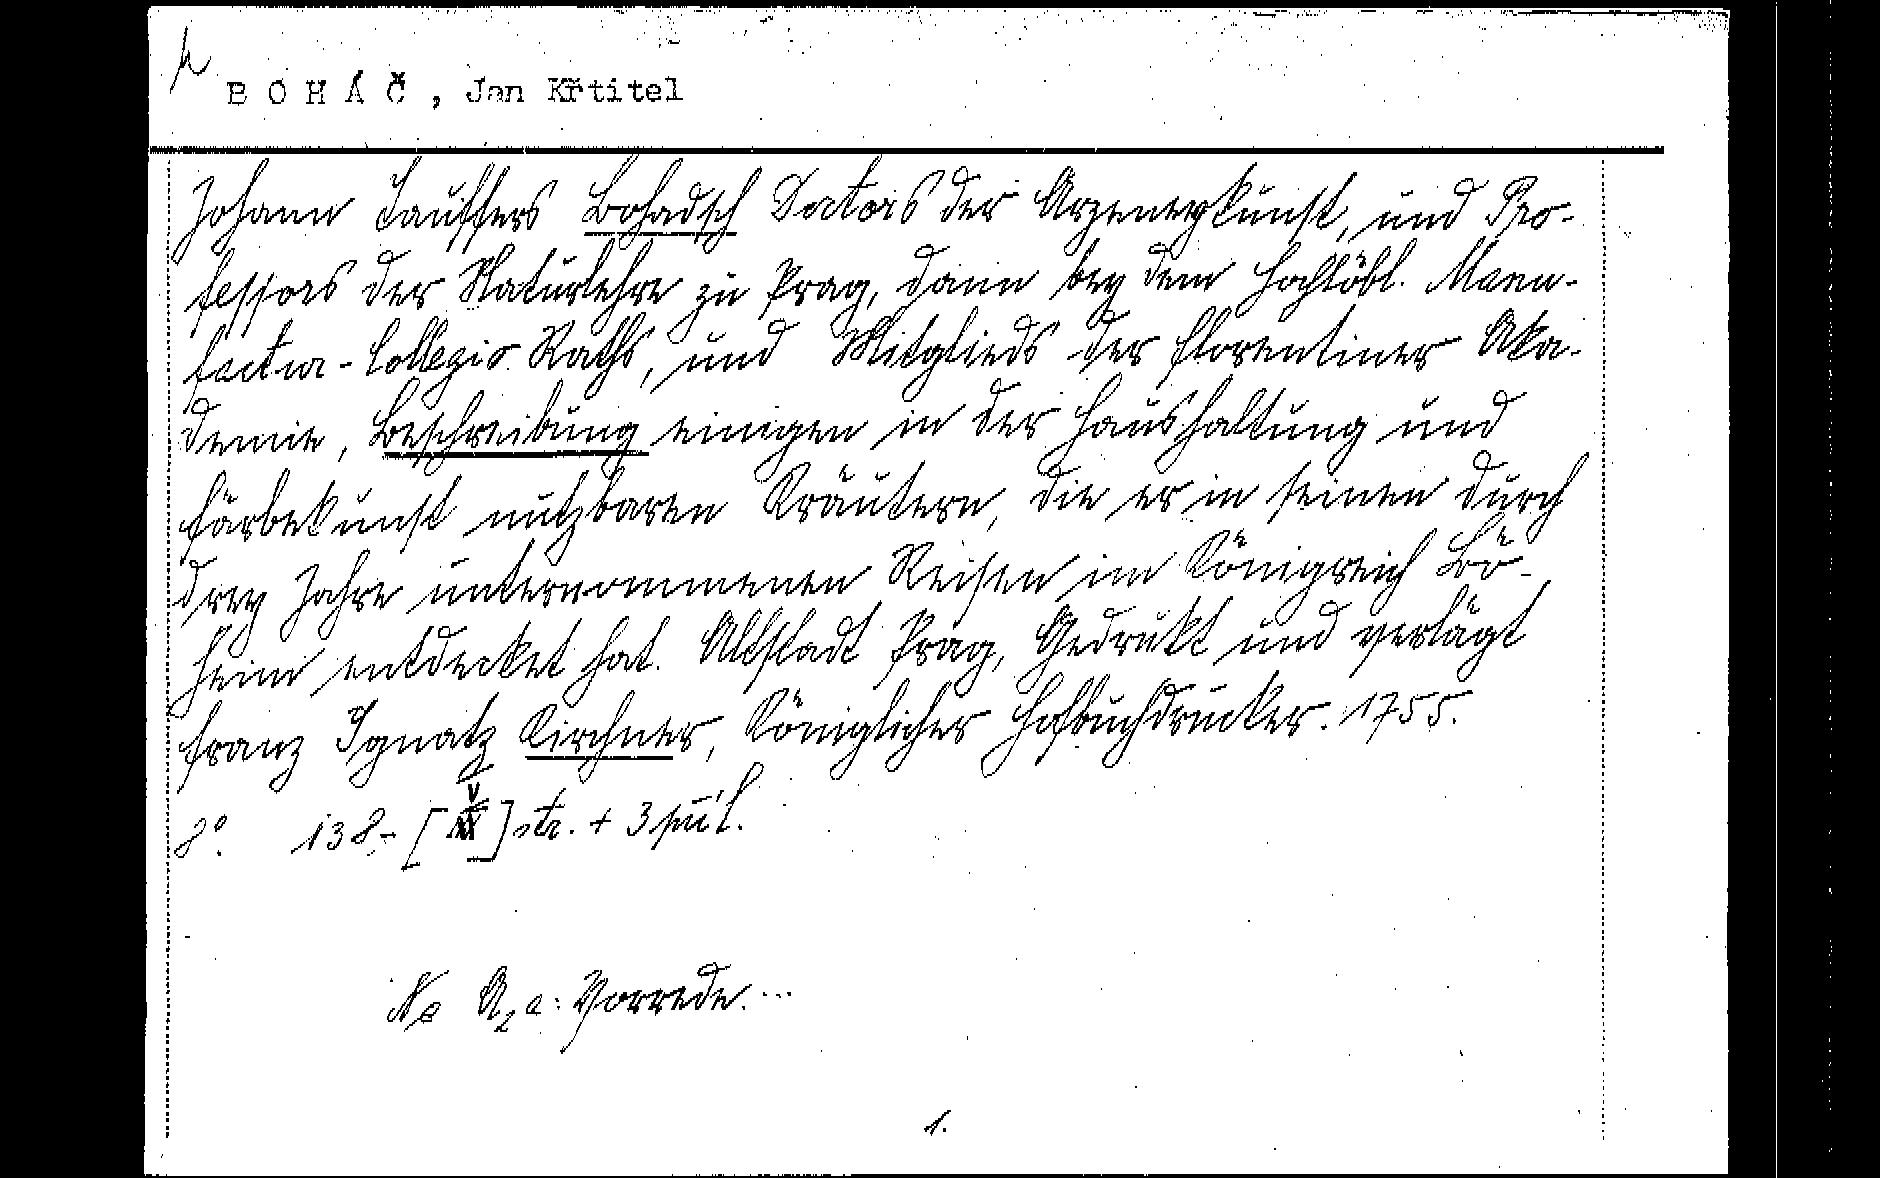 BOHÁČ, Jan Křtitel
Johann Tauffers Bohadsch Doctors der Arzeneykunst, und Pro-
fessors der Naturlehre zu Prag, dann bey dem Hochlöbl. Manu-
factur-Collegio Raths, und Mitglieds der florentiner Aka-
demie, Beschreibung einigen in der Haushaltung und
färbekunst nutzbaren Kräutern, die er in seinen durch
drey Jahre unternommenen Reisen im Königreich Bö-
heim entdecket hat. Altstadt Prag, Gedrukt und verlägt
Franz Ignatz Kirchner, Königlicher Hofbuchdrucker. 1755.
8°. 138,- [V] str. + 3 příl.
Na A2a: Vorrede. ...
1.